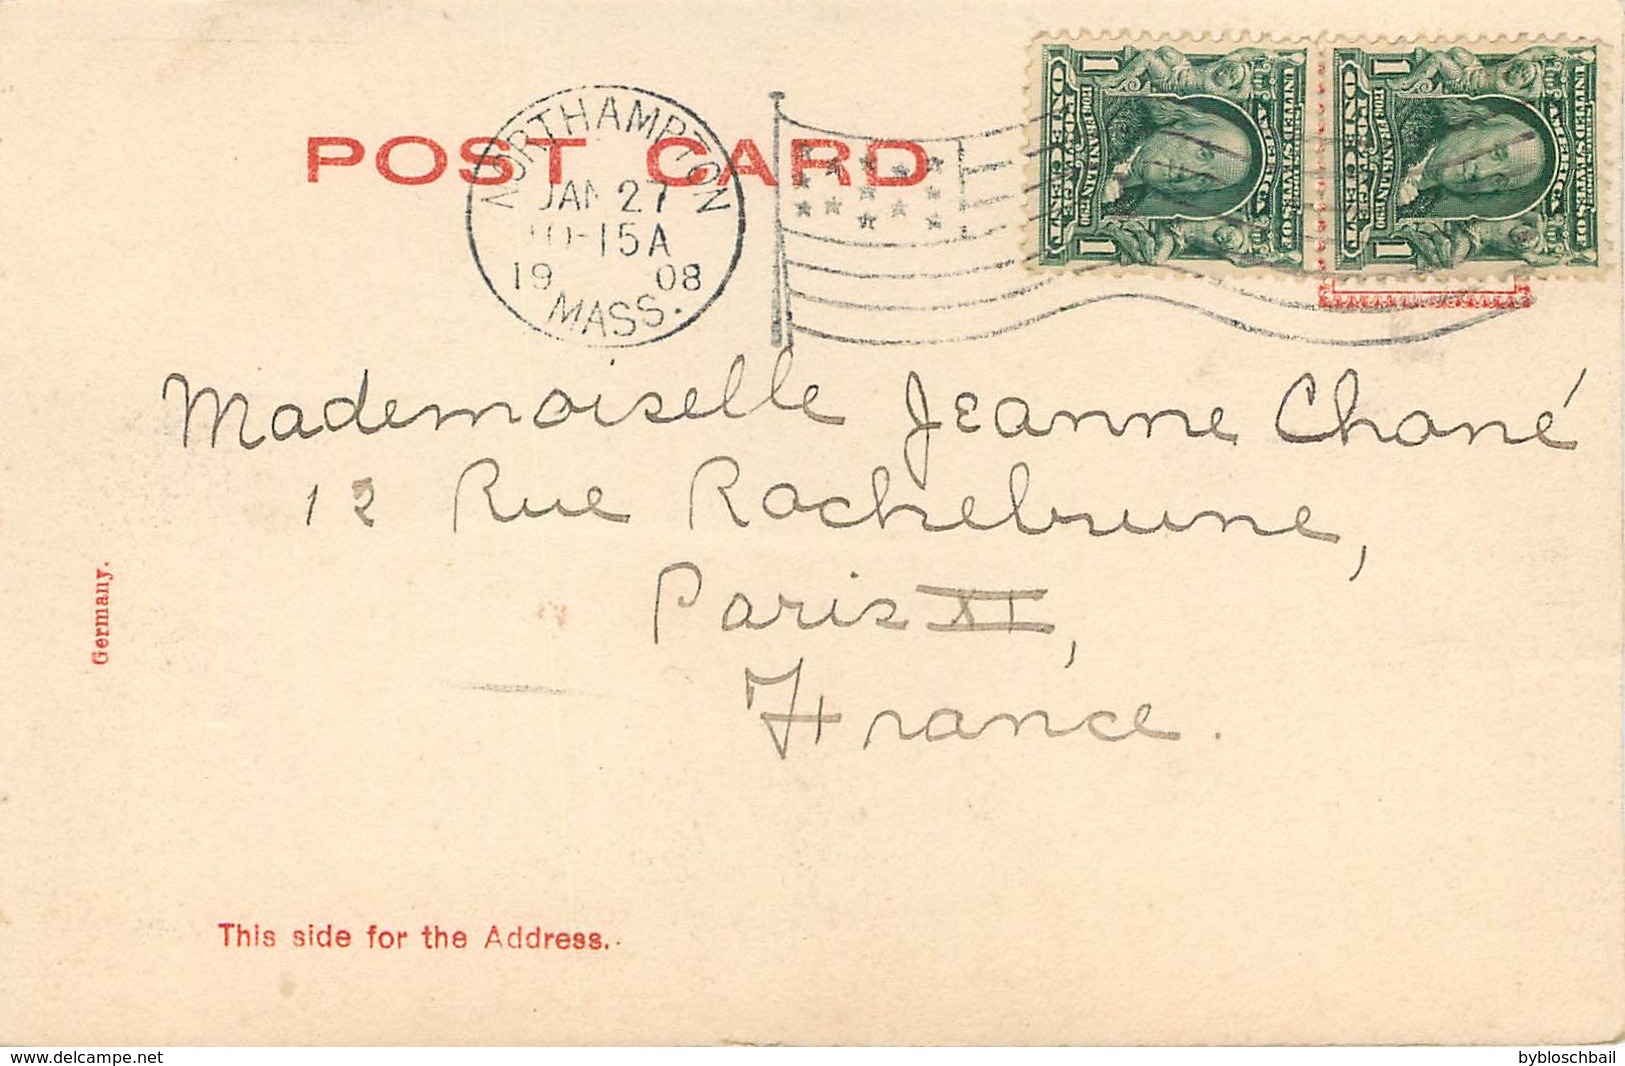 POST CARD
NORTHAMPTON
JAN 27
10-15A
19 08
MASS.
UNITED STATES OF
AMERICA
FRANKLIN
POSTAGE
ONE CENT
1 1
UNITED STATES OF
AMERICA
FRANKLIN
POSTAGE
ONE CENT
1 1
Mademoiselle Jeanne Chané
12 Rue Rochebrune,
Paris XI,
France.
Germany.
This side for the Address.
www.delcampe.net
bybloschbail